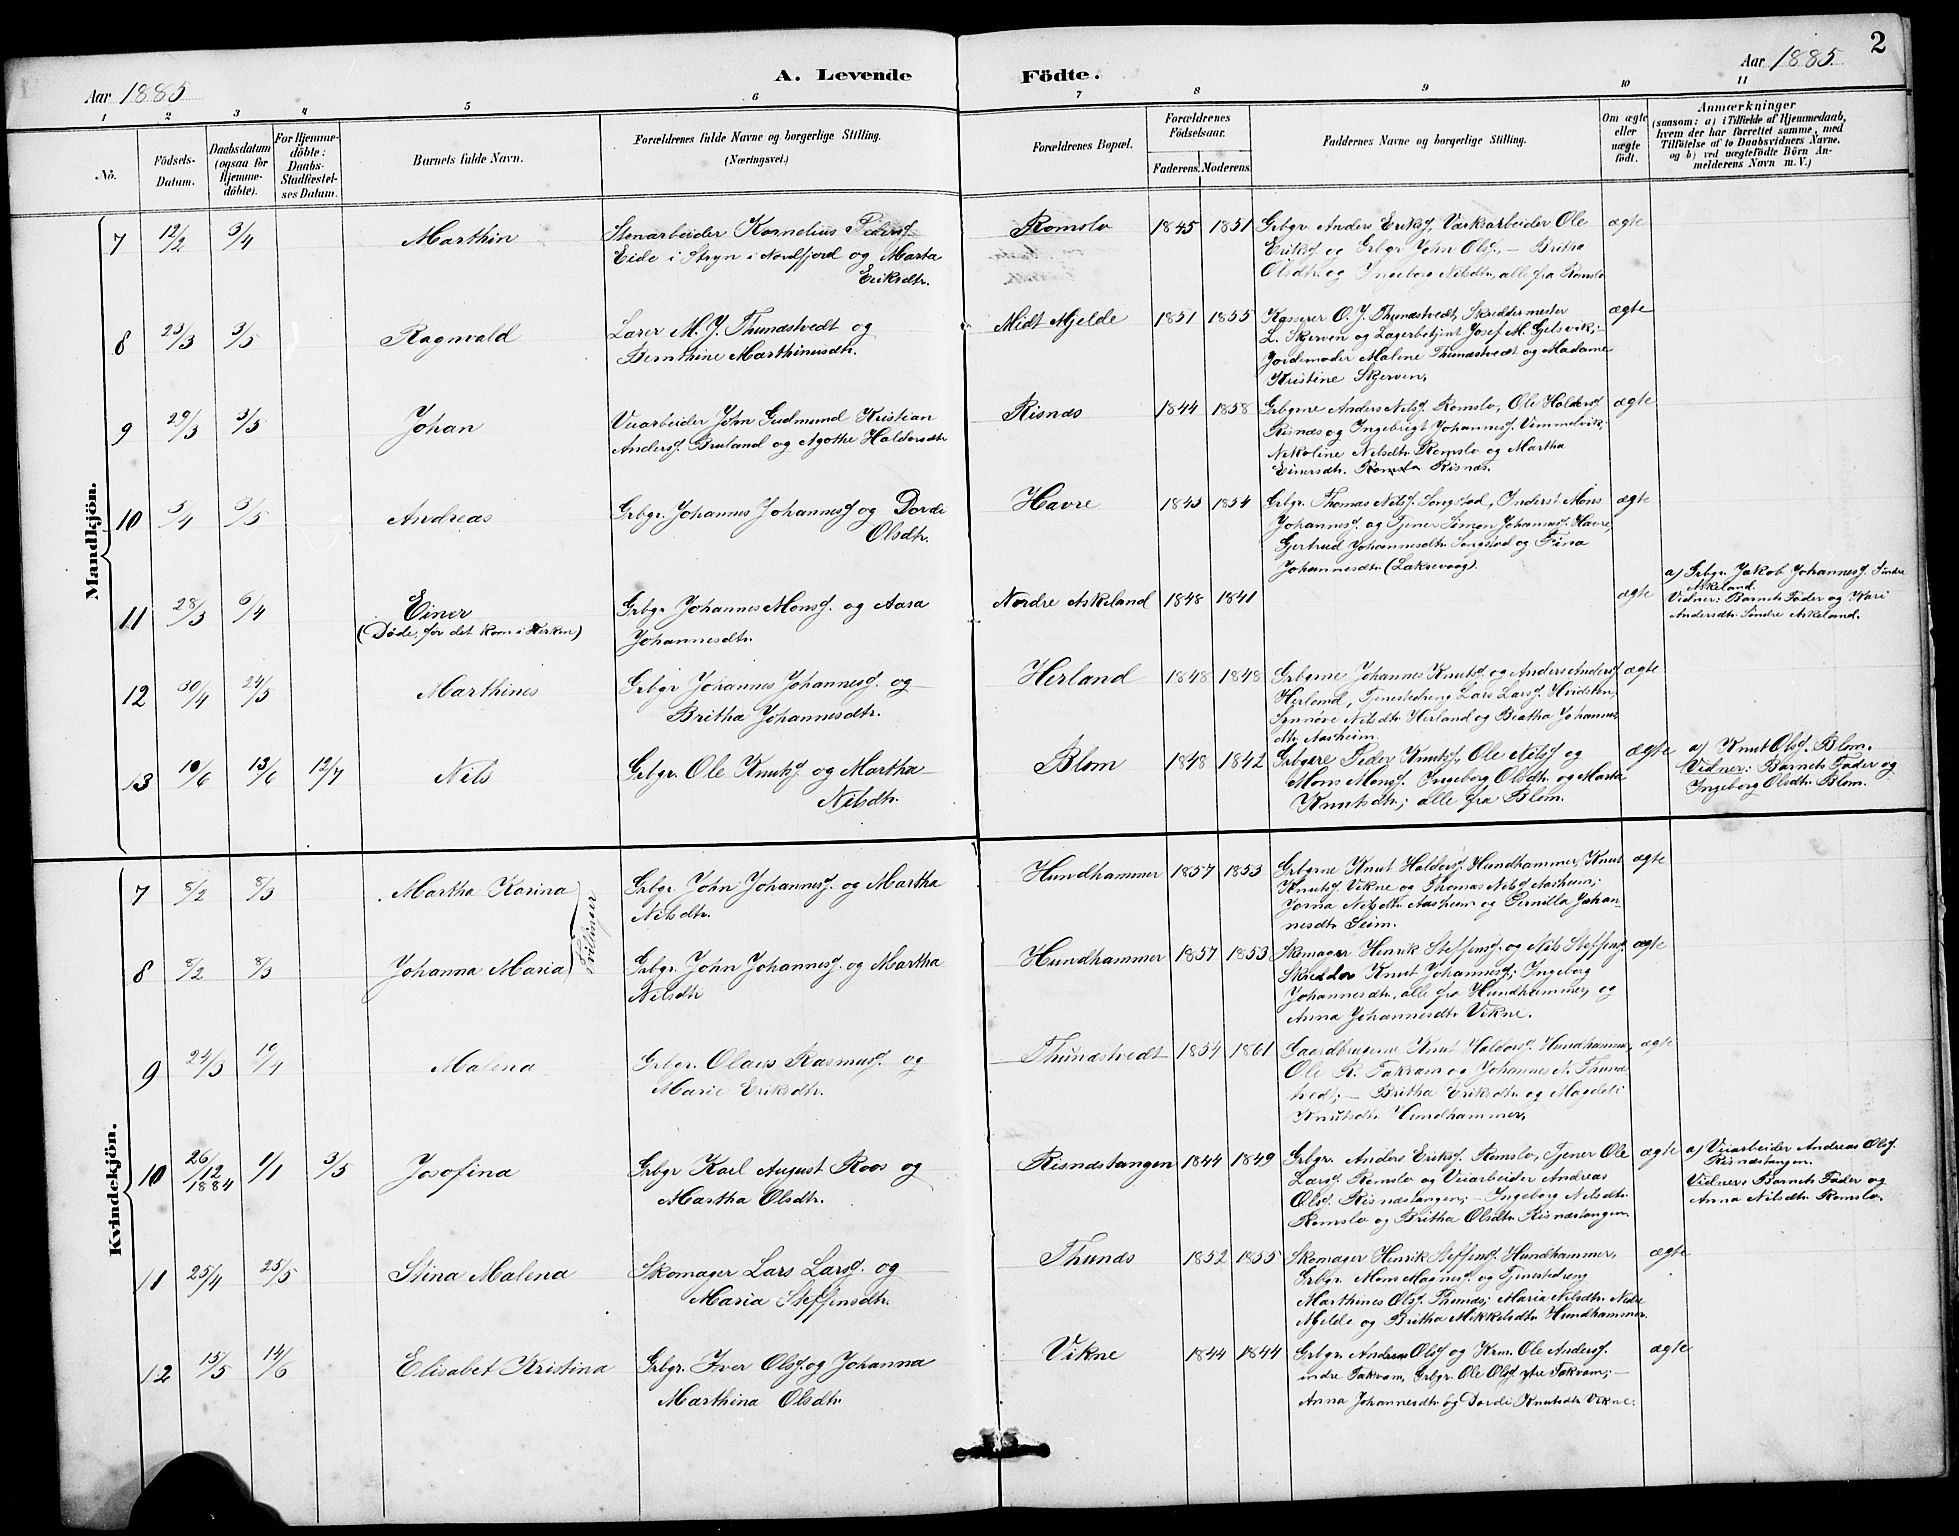 2
Aar 1885
A. Levende
Födte.
Aar 1885.
1 2 3 4 5 6 7 8 9 10 11
No.
Födsels-
Datum.
Daabsdatum
(ogsaa for
Hjemme-
döbte).
For Hjemme-
döbte:
Daabs-
Stadfæstel-
ses Datum.
Barnets fulde Navn.
Forældrenes fulde Navne og borgerlige Stilling.
(Næringsvei.)
Forældrenes Bopæl.
Forældrenes
Födselsaar.
Faderens. Moderens.
Faddernes Navne og borgerlige Stilling.
Om ægte
eller
uægte
födt.
Anmærkninger
(saasom: a) i Tilfælde af Hjemmedaab,
hvem der har forrettet samme, med
Tilföielse af to Daabsvidners Navne,
og b) ved uægtefödte Börn An-
melderens Navn m. V.)
Mandkjön.
7 12/2 3/4 Marthin
Stenarbeider Kornelius Peders.
Eide i Stryn i Nordfjord og Marta
Eriksdtr.
Romslo 1845 1851
Grbgr Anders Eriks., Værksarbeider Ole
Eriks. og Grbgr John Ols., – Britha
Olsdtr. og Ingeborg Nilsdtr., alle fra Romslo
ægte
8 23/3 3/5 Ragnvald
Lærer M. J. Thunæstvedt og
Bernthine Marthinusdtr.
Midt Mjelde 1851 1855
Kasserer O. J. Thunæstvedt, Skreddermester
L. Skjerven og Lagerbetjent Josef M. Gjelsvik;
Jordemoder Malene Thunæstvedt og Madame
Kristine Skjerven.
ægte
9 29/3 3/5 Johan
Veiarbeider John Gudmund Kristian
Anders. Bruland og Agothe Haldorsdtr
Risnæs 1844 1858
Grbgrne Anders Nils. Romslo, Ole Haldors.
Risnæs og Ingebrigt Johannes. Vimmelvik;
Nikoline Nilsdtr. Romslo og Martha
Einersdtr. Risnæs.
ægte
10 5/4 3/5 Andreas
Grbgr. Johannes Johannes. og Dorde
Olsdtr.
Havre 1843 1854
Grbgr. Thomas Nils. Songstad, Inderst Mons
Johannes. og Tjener Simon Johannes. Havre,
Gjertrud Johannesdtr. Songstad og Fina
Johannesdtr. (Laksevaag).
ægte
11 28/3 6/4 Einer
(Döde, för det kom i Kirken)
Grbgr. Johannes Mons. og Aasa
Johannesdtr.
Nordre Askeland 1848 1841
ægte
a) Grbgr. Jakob Johannes. Söndre
Askeland.
Vidner: Barnets Fader og Kari
Andersdtr. Söndre Askeland.
12 30/4 24/5 Marthines
Grbgr Johannes Johannes. og
Britha Johannesdtr.
Herland 1848 1848
Grbgrne Johannes Knuts. og Anders Anders.
Herland, Tjenestedreng Lars Lars. Hvidsten,
Synnöve Nilsdtr. Herland og Beatha Johannes
dtr. Aasheim.
ægte
13 10/6 13/6 12/7 Nils
Grbgr. Ole Knuts. og Martha
Nilsdtr.
Blom 1848 1842
Grbgere Peder Knuts., Ole Nils. og
Mons Mons. Ingeborg Olsdtr. og Marta
Knutsdtr; alle fra Blom.
ægte
a) Knut Ols. Blom.
Vidner: Barnets Fader og
Ingeborg Olsdtr. Blom.
Kvindekjön.
7 8/2 8/3 Martha Karina
Tvillinger
Grbgr. John Johannes. og Martha
Nilsdtr.
Hundhammer 1857 1853
Grbgrne Knut Haldors. Hundhammer, Knut
Knuts. Vikne og Thomas Nils. Aasheim;
Jorna Nilsdtr. Aasheim og Pernilla Johan-
nesdtr Seim.
ægte
8 8/2 8/3 Johanna Maria
Grbgr. John Johannes. og Martha
Nilsdtr
Hundhammer 1857 1853
Skomager Henrik Steffens. og Nils Steffens.
Skredder Knut Johannes.; Ingeborg
Johannesdtr., alle fra Hundhammer, og
Anna Johannesdtr. Vikne.
ægte
9 24/3 10/4 Malena
Grbgr. Olais Rasmus. og
Marie Eriksdtr.
Thunæstvedt 1854 1861
Gaardbrugerne Knut Haldors. Hundhammer,
Ole R. Takvam og Johannes N. Thunæs
tvedt; – Britha Eriksdtr. og Magdeli
Knutsdtr. Hundhammer.
ægte
10 26/12 1884 1/1 3/5 Josefina
Grbgr Karl August Roos og
Martha Olsdtr.
Risnæstangen 1844 1849
Grbgr. Anders Eriks. Romslo, Tjener Ole
Lars. Romslo og Veiarbeider Andreas
Ols. Risnæstangen; – Ingeborg Nilsdtr.
Romslo og Britha Olsdtr. Risnæstangen.
ægte
a) Veiarbeider Andreas Ols.
Risnæstangen.
Vidner: Barnets Fader og
Anna Nilsdtr. Romslo.
11 25/4 25/5 Stina Malena
Skomager Lars Lars. og
Maria Steffensdtr.
Thunæs 1852 1855
Skomager Henrik Steffens. Hundhammer,
Grbgr. Mons Magnes. og Tjenestedreng
Marthines Ols. Thunæs; Maria Nilsdtr. Nedre
Mjelde og Britha Mikkelsdtr. Hundhammer.
ægte
12 15/5 14/6 Elisabet Kristina
Grbgr. Iver Ols. og Johanna
Marthina Olsdtr.
Vikne 1844 1844
Grbgr. Andreas Ols. og Krm. Ole Anders.
indre Takvam, Grbgr. Ole Ols. ytre Takvam; –
Anna Johannesdtr. og Dorde Knutsdtr. Vikne.
ægte